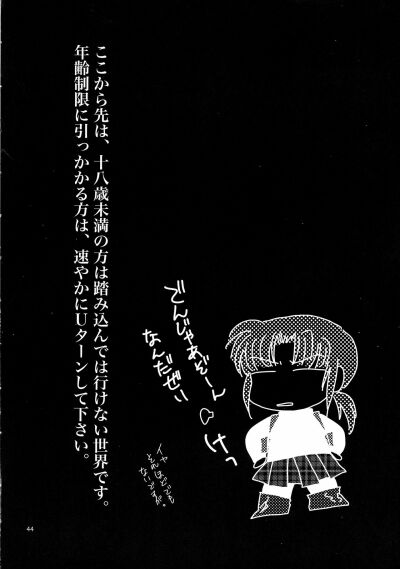 ここから先は、十八歳未満の方は踏み込んでは行けない世界です。
年齢制限に引っかかる方は、速やかにUターンして下さい。
でんじゃあぞーん
なんだぜい
けっ
イヤ
とんほどでも
ないですが。
44